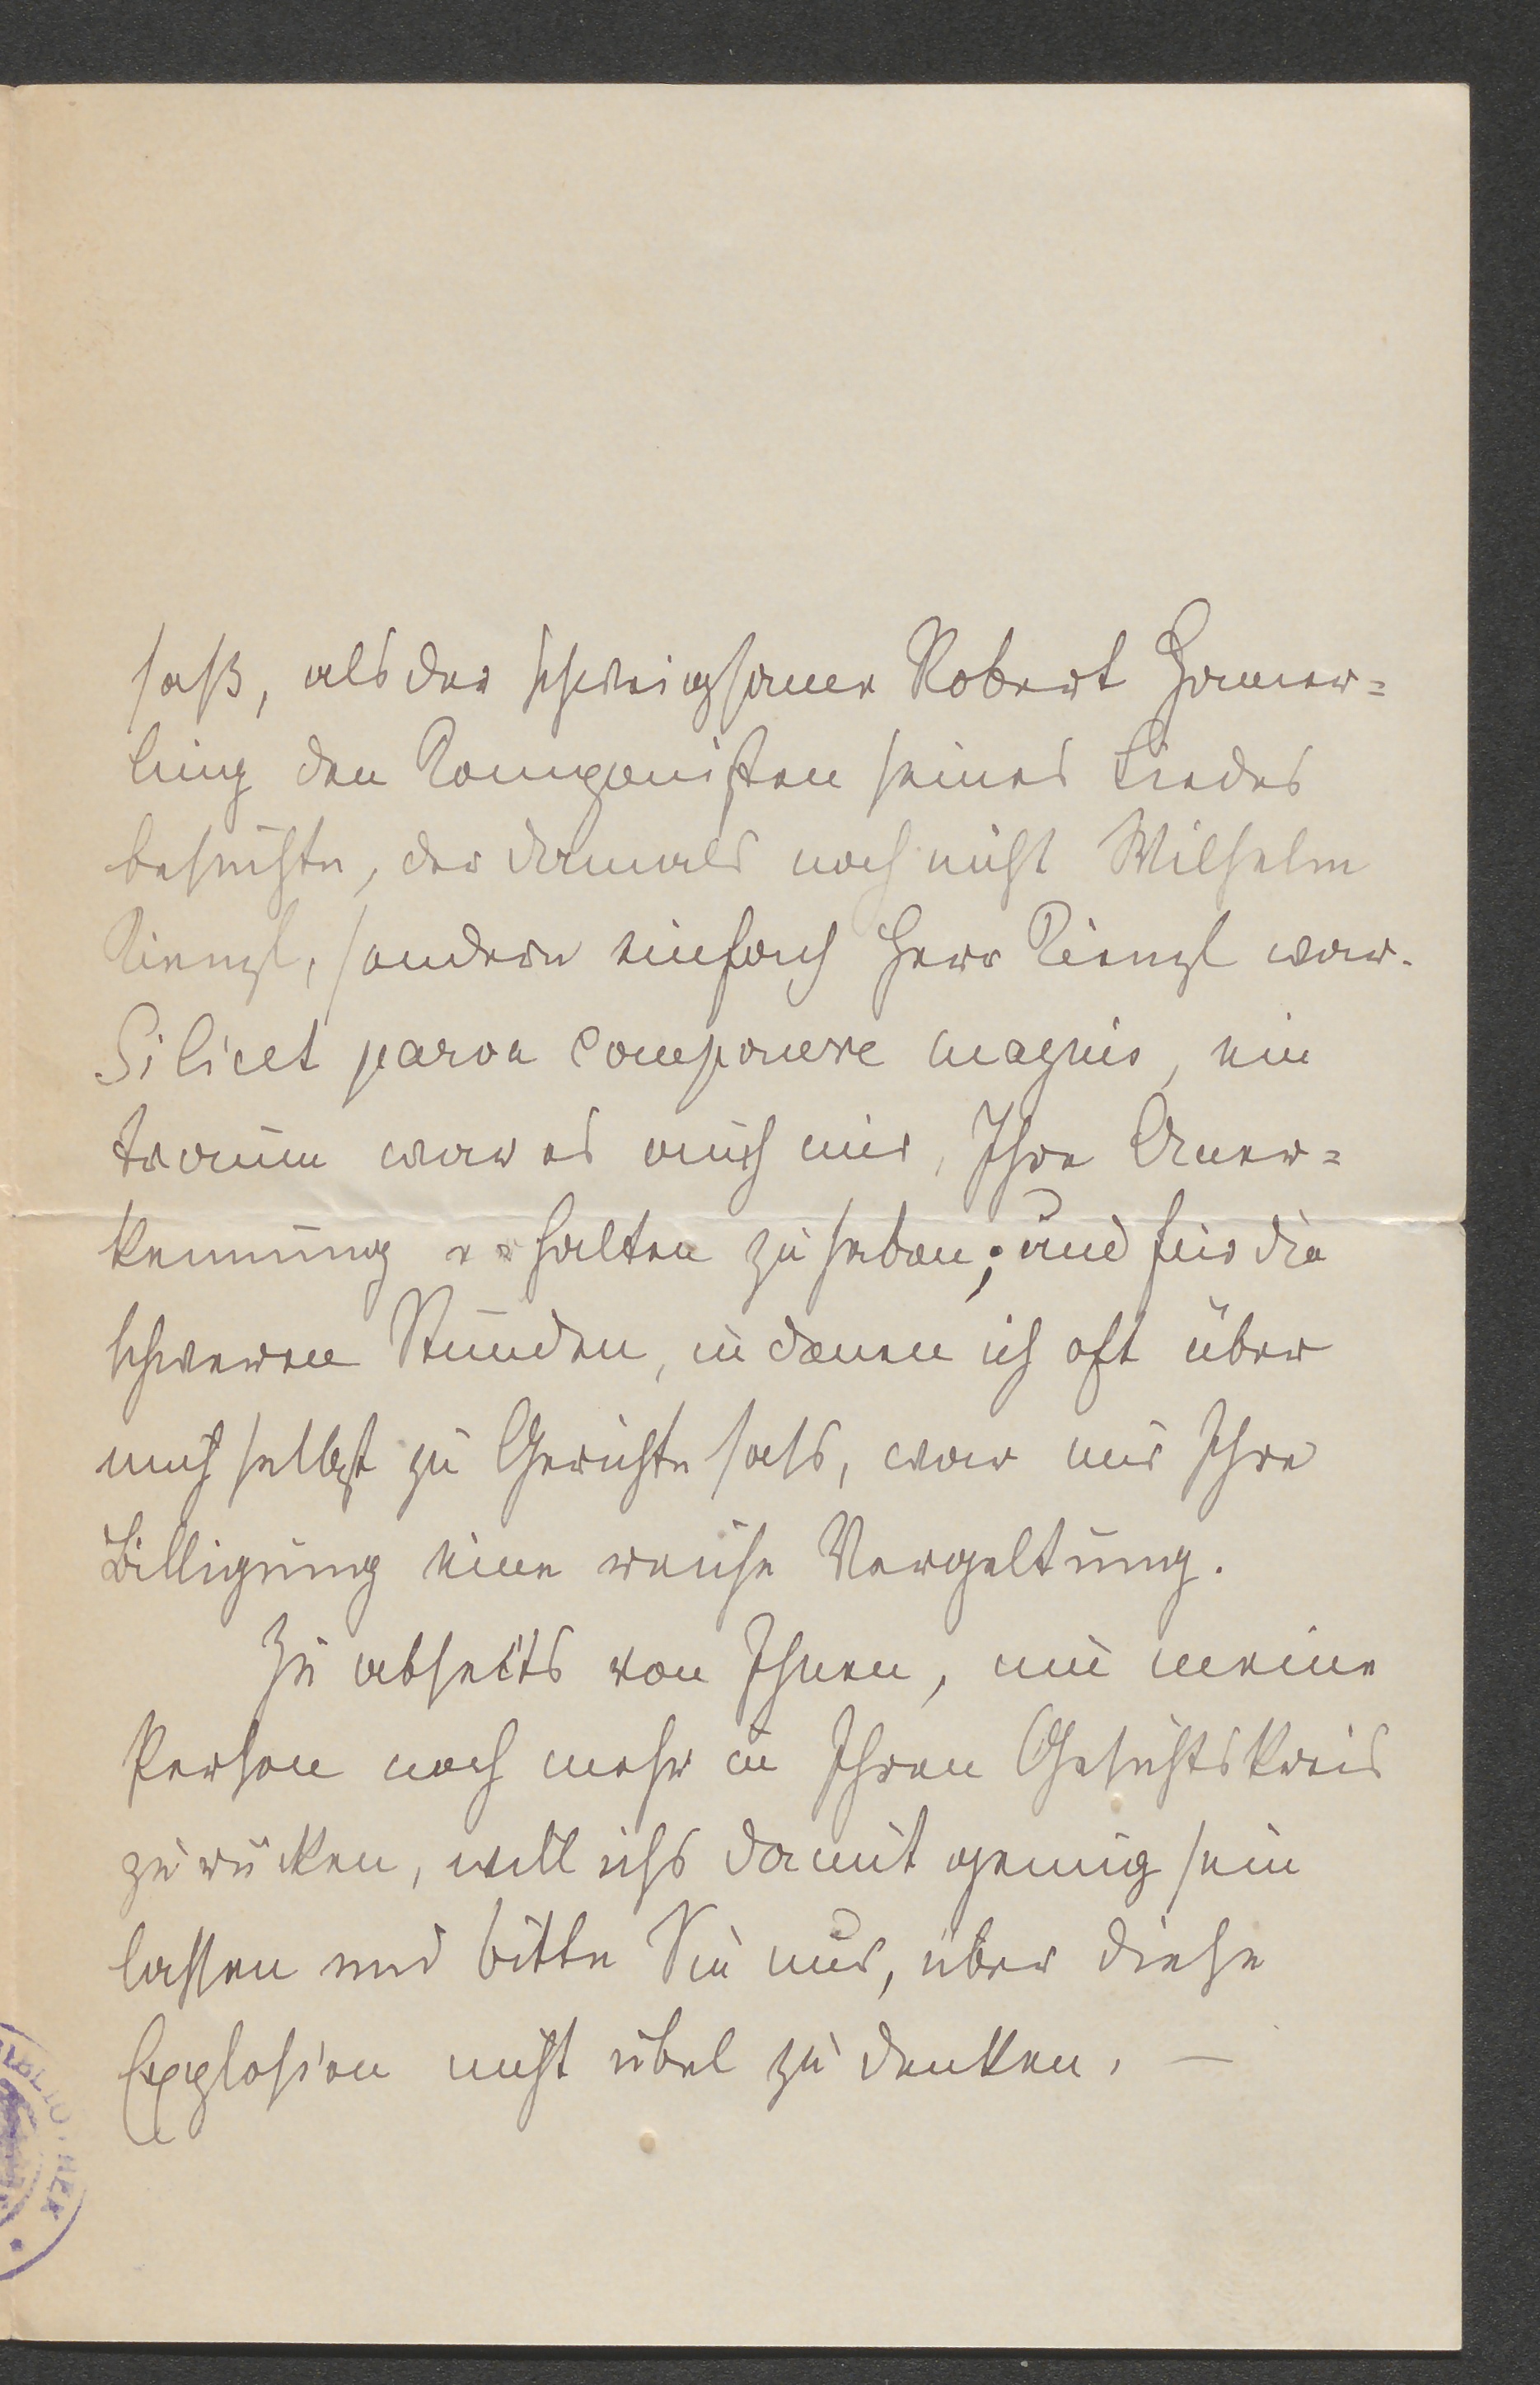 saß, als der schweigsame Robert Hamer=
ling den Componisten seines Liedes
besuchte, der damals noch nicht Wilhelm
Kienzl, sondern einfach Herr Kienzl war.
Si licet parva componere magnis, ein
traum war es auch mir, Ihre Aner=
kennung erhalten zu haben; und für die
schweren Stunden, in denen ich oft über
mich selbst zu Gerichte saß, war mir Ihre
Billigung eine reiche Vergeltung.
Zu abseits von Ihnen, um meine
Person noch mehr in Ihren Gesichtskreis
zu rücken, will ichs damit genug sein
lassen und bitte Sie nur, über diese
Explosion nicht übel zu denken. —